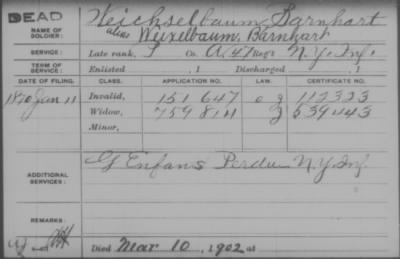 DEAD
NAME OF SOLDIER: Weichselbaum, Barnhart
alias Weixelbaum, Barnhart
SERVICE: Late rank, P Co. A, 47 Reg't N.Y. Inf.
TERM OF SERVICE: Enlisted , 1 Discharged , 1
DATE OF FILING. CLASS. APPLICATION NO. LAW. CERTIFICATE NO.
1870 Jan 11 Invalid, 151 647 112323
Widow, 759 811 539443
Minor,
ADDITIONAL SERVICES: G Enfans Perdu N.Y. Inf.
REMARKS:
Died Mar 10, 1902 at